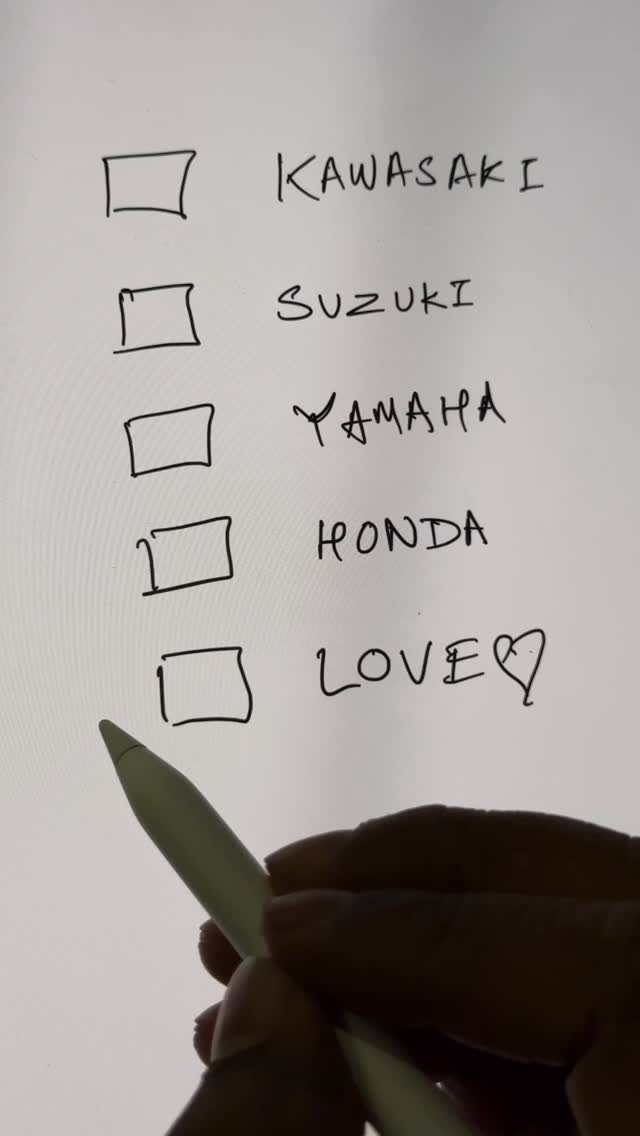 KAWASAKI
SUZUKI
YAMAHA
HONDA
LOVE♡